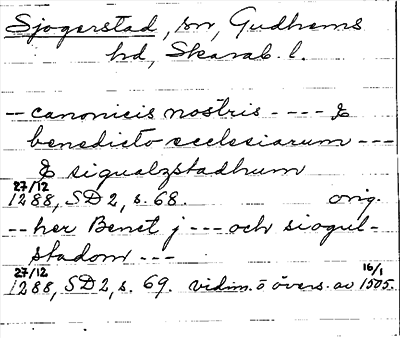 Sjogerstad, sn, Gudhems
hd, Skarab. l.
-- canonicis nostris ---- &
benedicto ecclesiarum ---
& sigualzstadhum
27/12
1288, SD 2, s. 68. orig.
-- her Benct j --- och siogul-
stadom ---
27/12 16/1
1288, SD 2, s. 69. vidim. o övers. av 1505.